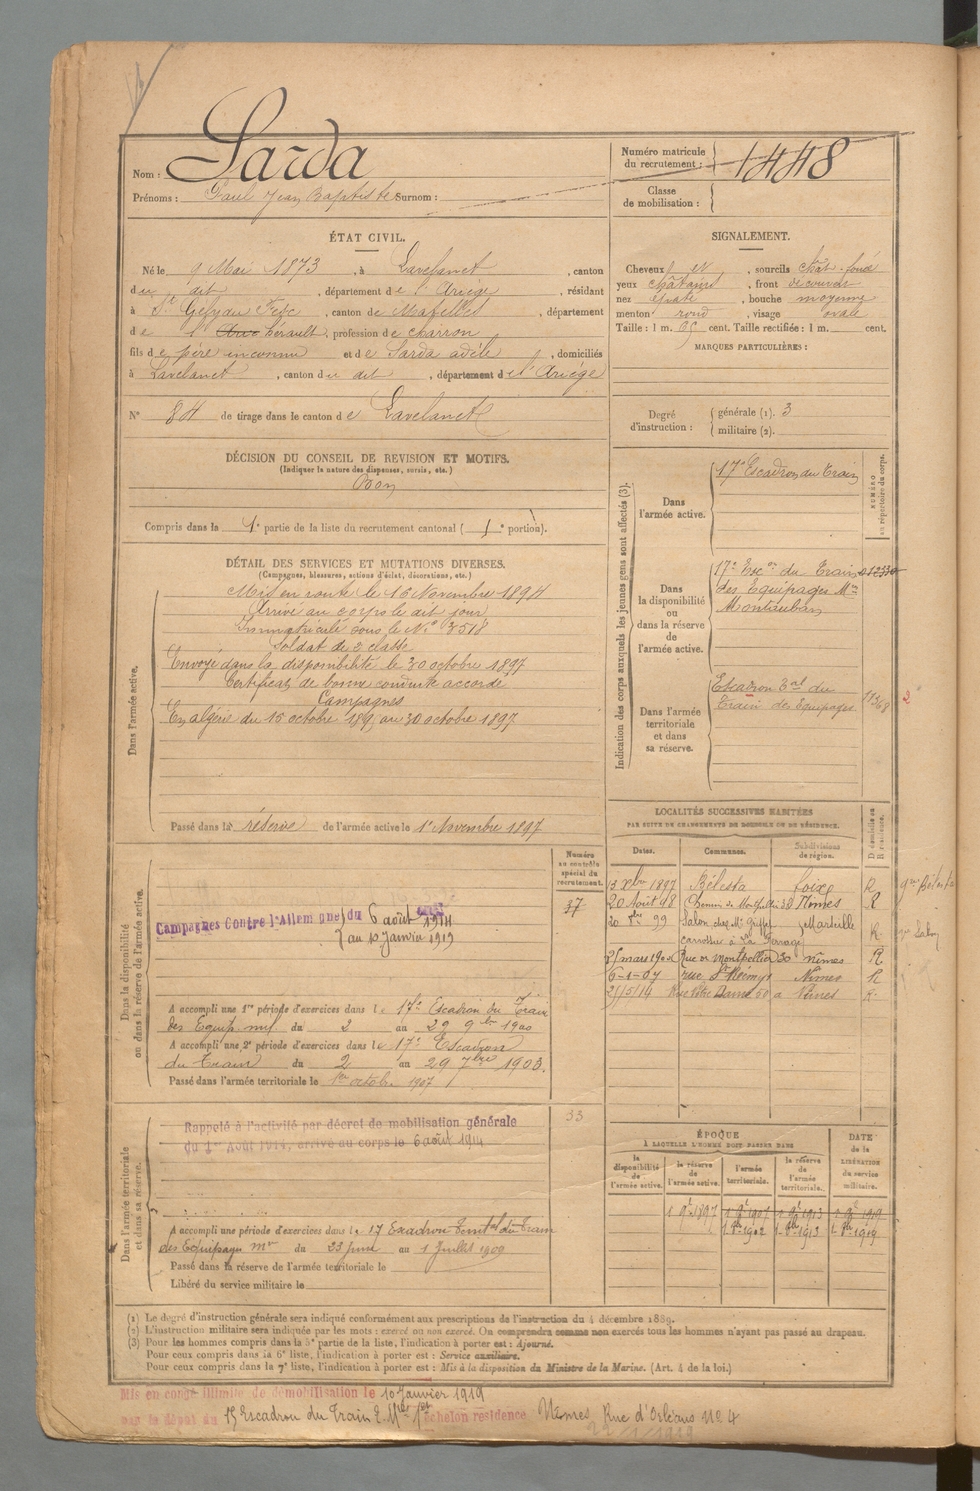 Nom : Sarda
Prénoms : Paul Jean Baptiste Surnom :
Numéro matricule du recrutement : 1448
Classe de mobilisation :
ÉTAT CIVIL.
Né le 9 Mai 1873, à Lavelanet, canton
du dit, département de l'Ariège, résidant
à St Gely du Fesc, canton de Matelles, département
de l' Hérault, profession de charron
fils de père inconnu et de Sarda adèle, domiciliés
à Lavelanet, canton du dit, département de l'Ariège
N° 84 de tirage dans le canton de Lavelanet
DÉCISION DU CONSEIL DE REVISION ET MOTIFS.
(Indiquer la nature des dispenses, sursis, etc.)
Bon
Compris dans la 1e partie de la liste du recrutement cantonal ( 1e portion).
DÉTAIL DES SERVICES ET MUTATIONS DIVERSES.
(Campagnes, blessures, actions d'éclat, décorations, etc.)
Dans l'armée active.
Mis en route le 16 Novembre 1894
Arrivé au corps le dit jour
Immatriculé sous le N° 3518
Soldat de 2 classe
Envoyé dans la disponibilité le 30 octobre 1897
Certificat de bonne conduite accordé
Campagnes
En algérie du 15 octobre 1895 au 30 octobre 1897
Passé dans la réserve de l'armée active le 1er Novembre 1897
SIGNALEMENT.
Cheveux et, sourcils chât. foncé
yeux châtains, front découvert
nez épaté, bouche moyenne
menton rond, visage ovale
Taille : 1 m. 65 cent. Taille rectifiée : 1 m. cent.
MARQUES PARTICULIÈRES :
Degré d'instruction :
générale (1). 3
militaire (2).
Indication des corps auxquels les jeunes gens sont affectés (3).
NUMÉRO au répertoire du corps.
Dans l'armée active.
17e Escadron du Train
Dans la disponibilité ou dans la réserve de l'armée active.
17e Escon du Train
des Equipages Mres
Montauban
Dans l'armée territoriale et dans sa réserve.
Escadron 3al du
Train des Equipages
2
LOCALITÉS SUCCESSIVES HABITÉES
PAR SUITE DE CHANGEMENTS DE DOMICILE OU DE RÉSIDENCE.
Dates. Communes. Subdivisions de région. D domicile ou R résidence.
13 Xbre 1897 Bélesta foix R
20 août 98 Chemin de Montpellier 30 Nîmes R
99 Salon chez Mr Marseille R
carrossier à La
25 mars 1900 Rue de Montpellier 30 nîmes R
6-1-07 rue St Rémy Nîmes R
2/5/14 Rue Notre Dame 50 a Nîmes R.
Dans la disponibilité ou dans la réserve de l'armée active.
Numéro au contrôle spécial du recrutement.
37
Campagnes Contre l'Allemagne du 6 août 1914
au 10 Janvier 1919
A accompli une 1re période d'exercices dans le 17e Escadron du Train
des Equip. mil. du 2 au 29 9bre 1900
A accompli une 2e période d'exercices dans le 17e Escadron
du Train du 2 au 29 7bre 1903.
Passé dans l'armée territoriale le 1er octobre 1907
Dans l'armée territoriale et dans sa réserve.
33
Rappelé à l'activité par décret de mobilisation générale
du 1er Août 1914, arrivé au corps le 6 août 1914
A accompli une période d'exercices dans le 17 Escadron Territal du Train
des Equipages Mres du 23 Juin au 1 Juillet 1909
Passé dans la réserve de l'armée territoriale le
Libéré du service militaire le
ÉPOQUE
À LAQUELLE L'HOMME DOIT PASSER DANS
la disponibilité de l'armée active. la réserve de l'armée active. l'armée territoriale. la réserve de l'armée territoriale. DATE de la LIBÉRATION du service militaire.
(1) Le degré d'instruction générale sera indiqué conformément aux prescriptions de l'instruction du 4 décembre 1889.
(2) L'instruction militaire sera indiquée par les mots : exercé ou non exercé. On comprendra comme non exercés tous les hommes n'ayant pas passé au drapeau.
(3) Pour les hommes compris dans la 5e partie de la liste, l'indication à porter est : Ajourné.
Pour ceux compris dans la 6e liste, l'indication à porter est : Service auxiliaire.
Pour ceux compris dans la 7e liste, l'indication à porter est : Mis à la disposition du Ministre de la Marine. (Art. 4 de la loi.)
Mis en congé illimité de démobilisation le 10 Janvier 1919
par le dépôt du 15 Escadron du Train E. Mres 1er échelon résidence Nîmes Rue d'Orléans No 4